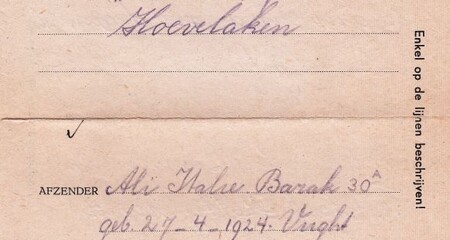 Hoevelaken
AFZENDER Ali Barak 30A
geb. 27-4-1924. Vught
Enkel op de lijnen beschrijven!